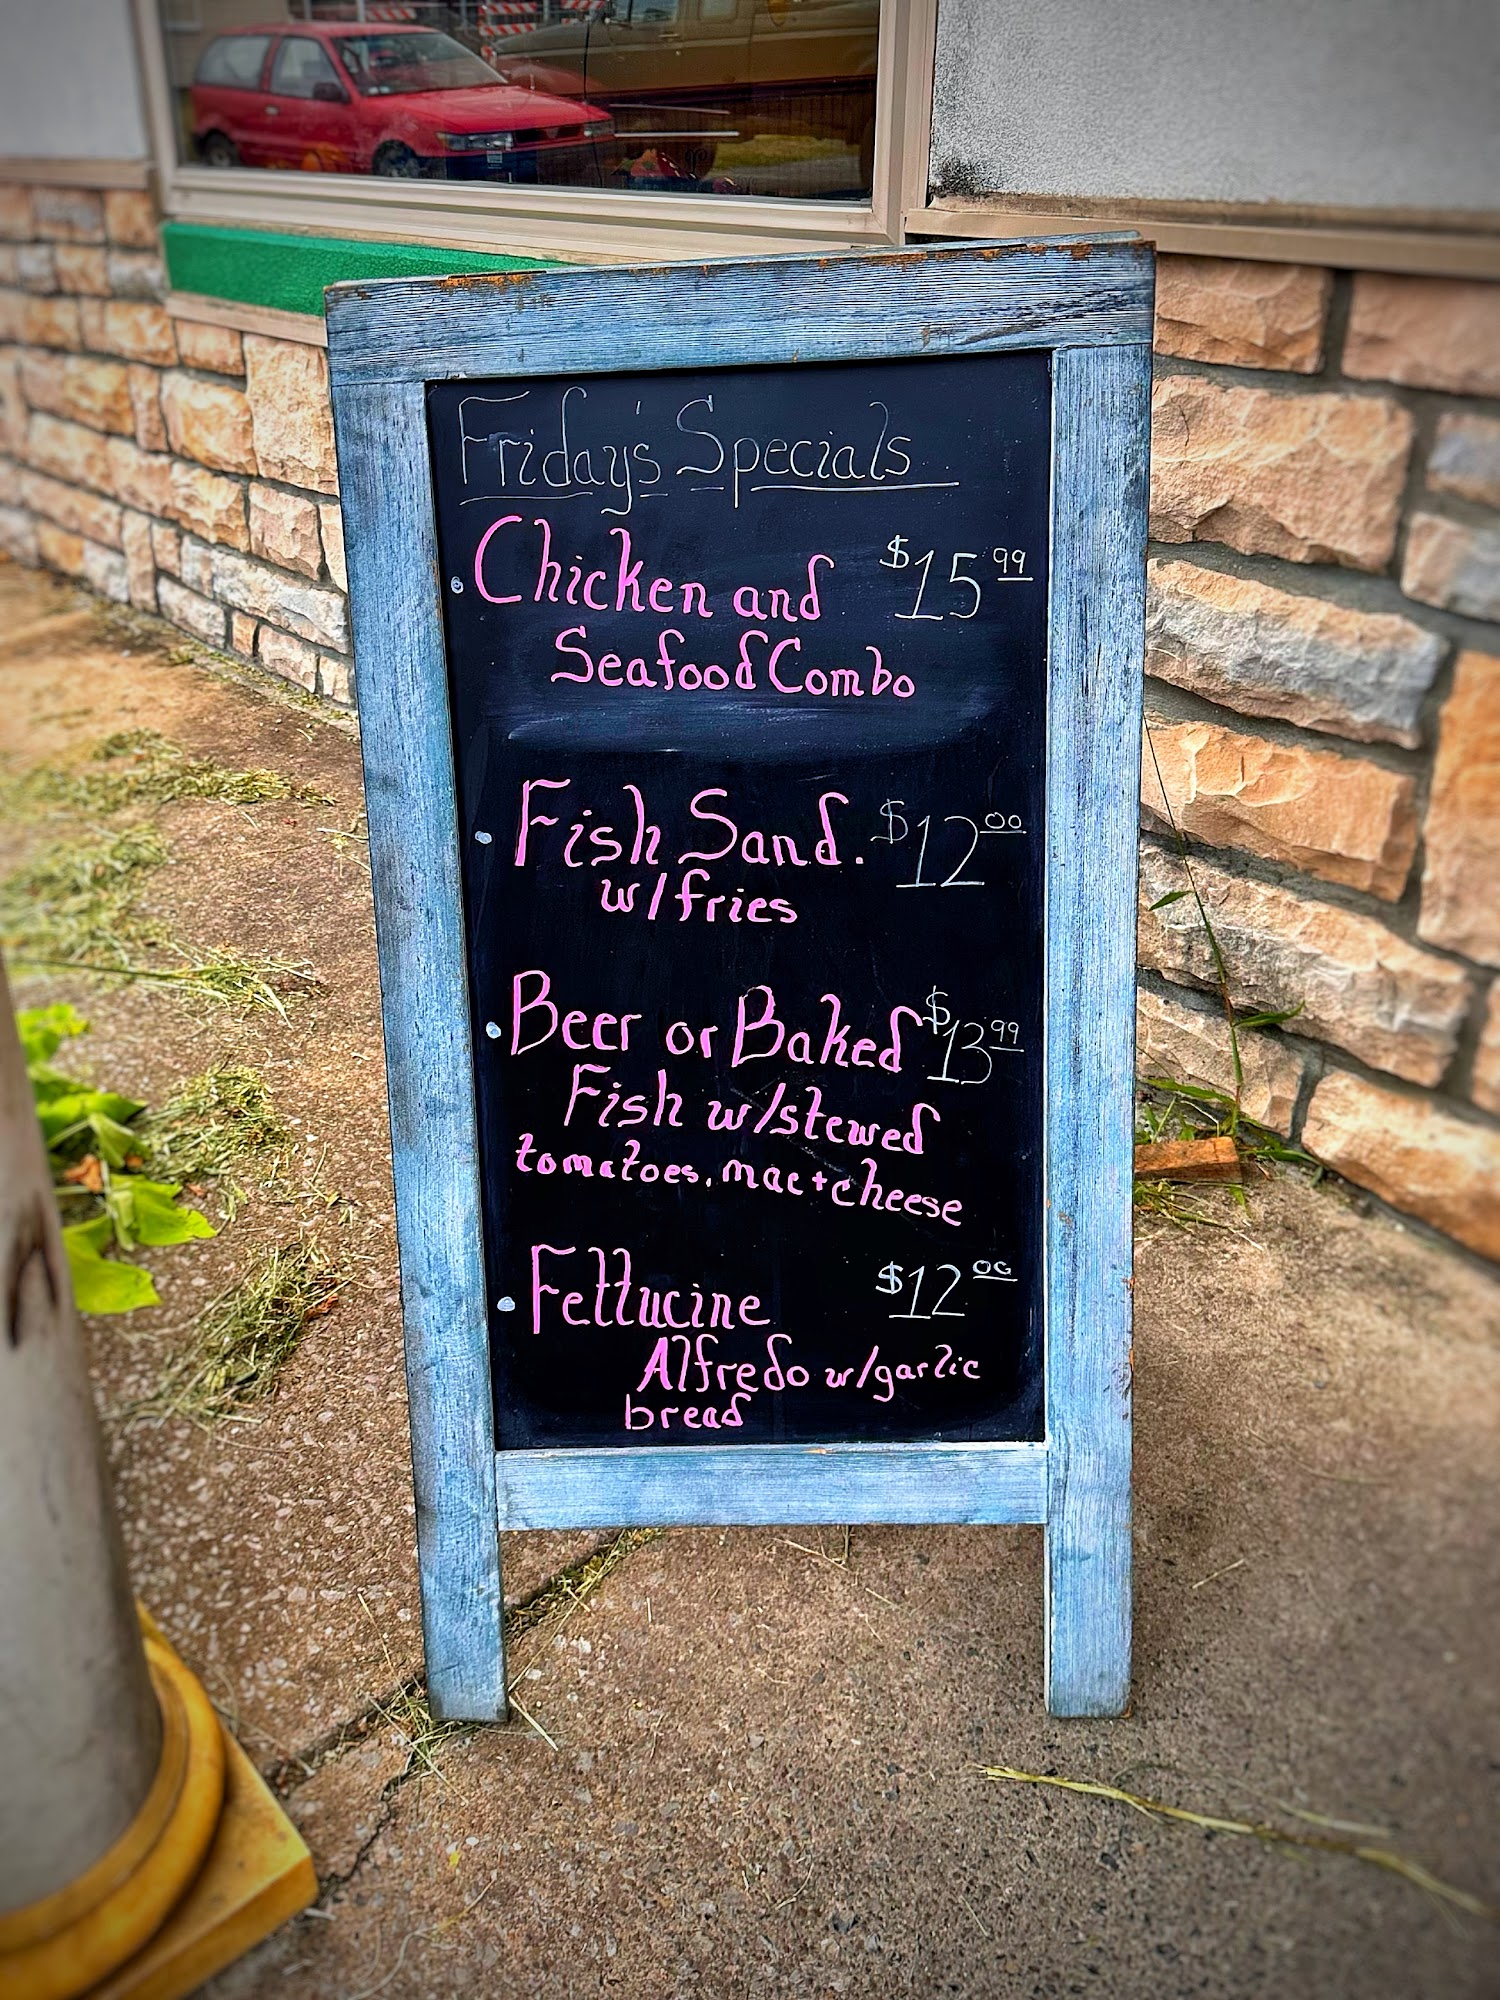 Friday's Specials
Chicken and $15.99
Seafood Combo
Fish Sand. $12.00
w/fries
Beer or Baked $13.99
Fish w/stewed
tomatoes, mac+cheese
Fettucine $12.00
Alfredo w/garlic
bread